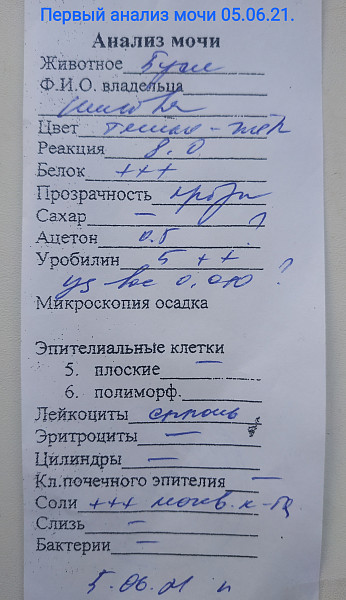 Первый анализ мочи 05.06.21.
Анализ мочи
Животное
Ф.И.О. владельца
Цвет темно-жел
Реакция 8.0
Белок +++
Прозрачность прозр
Сахар — ?
Ацетон 0.5
Уробилин 5 ++ ?
уд вес 0,010
Микроскопия осадка
Эпителиальные клетки
5. плоские —
6. полиморф.
Лейкоциты сплошь
Эритроциты —
Цилиндры —
Кл.почечного эпителия —
Соли +++ мочев. к-та
Слизь —
Бактерии —
5.06.21